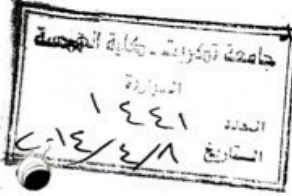 جامعة تكريت - كلية الهندسة
الصادرة
العدد ١٤٤١
التاريخ ٢٠١٤/٤/٨